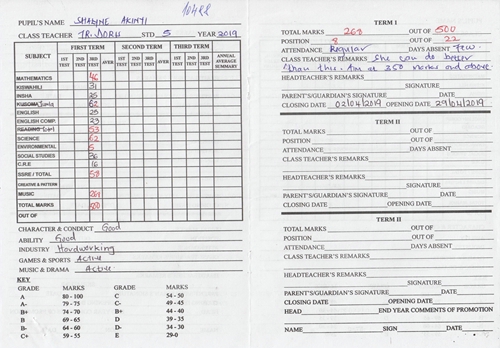 PUPIL'S NAME SHADINE AKINYI
CLASS TEACHER TR. DORU STD 5 YEAR 2019
SUBJECT FIRST TERM SECOND TERM THIRD TERM ANNUAL AVERAGE SUMMARY
1ST TEST 2ND TEST 3RD TEST AVER 1ST TEST 2ND TEST 3RD TEST AVER 1ST TEST 2ND TEST 3RD TEST
MATHEMATICS 46
KISWAHILI 31
INSHA 25
KUSOMA 62
ENGLISH 25
ENGLISH COMP. 23
READING 53
SCIENCE 62
ENVIRONMENTAL 5
SOCIAL STUDIES 36
C.R.E 16
SSRE / TOTAL 58
CREATIVE & PATTERN
MUSIC 268
TOTAL MARKS 500
OUT OF
CHARACTER & CONDUCT Good
ABILITY Good
INDUSTRY Hardworking
GAMES & SPORTS Active
MUSIC & DRAMA Active
KEY
GRADE MARKS GRADE MARKS
A 80 - 100 C 54 - 50
A- 79 - 75 C- 49 - 45
B+ 74 - 70 B+ 44 - 40
B 69 - 65 D 39 - 35
B- 64 - 60 D- 34 - 30
C+ 59 - 55 E 29-0
TERM I
TOTAL MARKS 268 OUT OF 500
POSITION 8 OUT OF 22
ATTENDANCE Regular DAYS ABSENT Few.
CLASS TEACHER'S REMARKS She can do better
than this. Aim at 350 marks and above.
HEADTEACHER'S REMARKS
SIGNATURE
PARENT'S/GUARDIAN'S SIGNATURE DATE
CLOSING DATE 02/04/2019 OPENING DATE 29/04/2019
TERM II
TOTAL MARKS OUT OF
POSITION OUT OF
ATTENDANCE DAYS ABSENT
CLASS TEACHER'S REMARKS
HEADTEACHER'S REMARKS
SIGNATURE
PARENT'S/GUARDIAN'S SIGNATURE DATE
CLOSING DATE OPENING DATE
TERM II
TOTAL MARKS OUT OF
POSITION OUT OF
ATTENDANCE DAYS ABSENT
CLASS TEACHER'S REMARKS
HEADTEACHER'S REMARKS
SIGNATURE
PARENT'S/GUARDIAN'S SIGNATURE DATE
CLOSING DATE OPENING DATE
HEAD END YEAR COMMENTS OF PROMOTION
NAME SIGN DATE